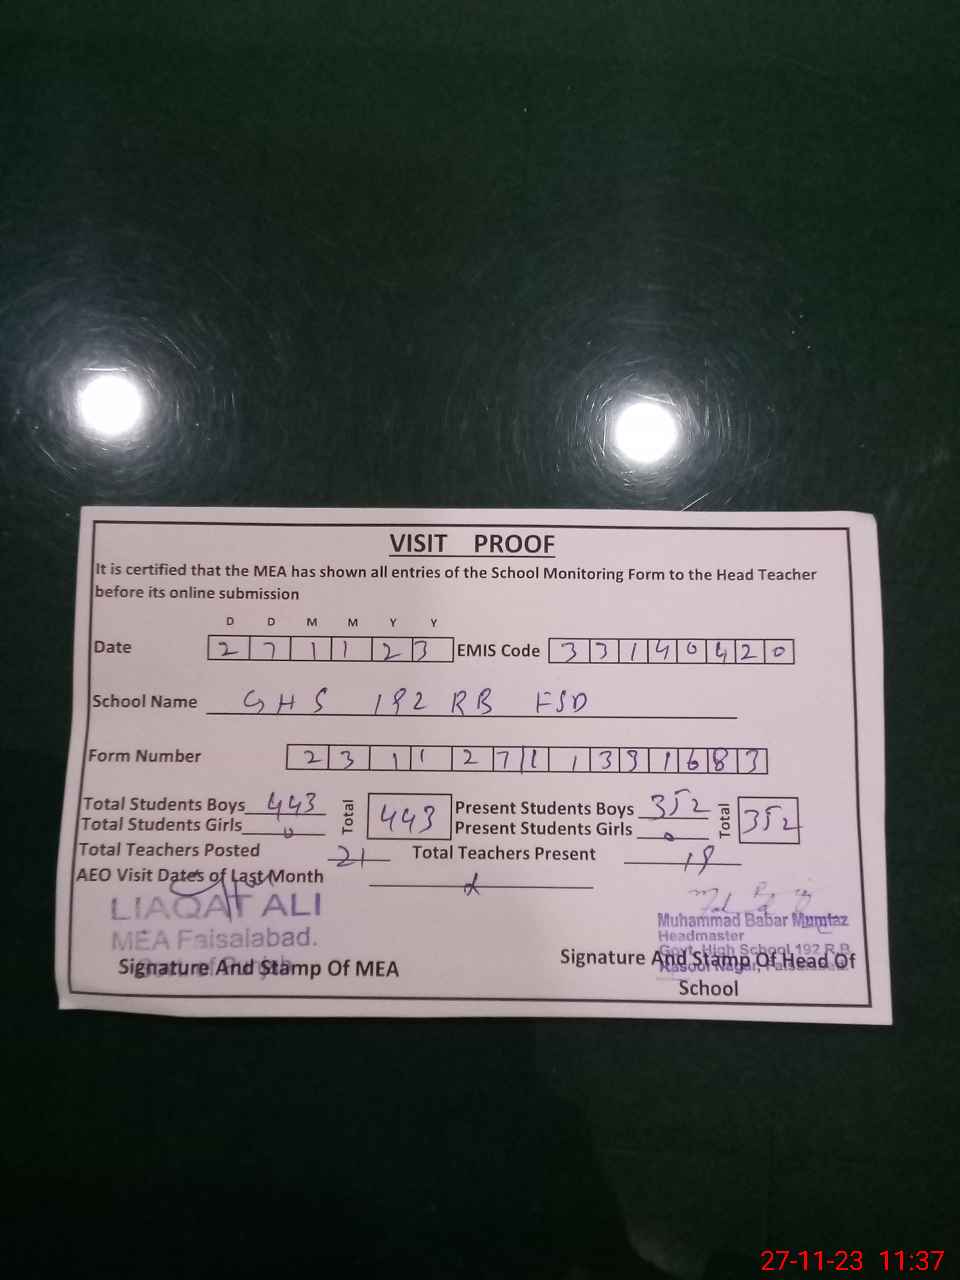 VISIT PROOF
It is certified that the MEA has shown all entries of the School Monitoring Form to the Head Teacher
before its online submission
D D M M Y Y
Date 2 7 1 1 2 3 EMIS Code 3 3 1 4 0 4 2 0
School Name GHS 192 RB FSD
Form Number 2 3 1 1 2 7 1 1 3 9 1 6 8 3
Total Students Boys 443 Total 443 Present Students Boys 352 Total 352
Total Students Girls 0 Present Students Girls 0
Total Teachers Posted 21 Total Teachers Present 19
AEO Visit Dates of Last Month
LIAQAT ALI
MEA Faisalabad.
Signature And Stamp Of MEA
Muhammad Babar Mumtaz
Headmaster
Govt. High School 192 R.B.
Rasool Nagar, Faisalabad
Signature And Stamp Of Head Of
School
27-11-23 11:37